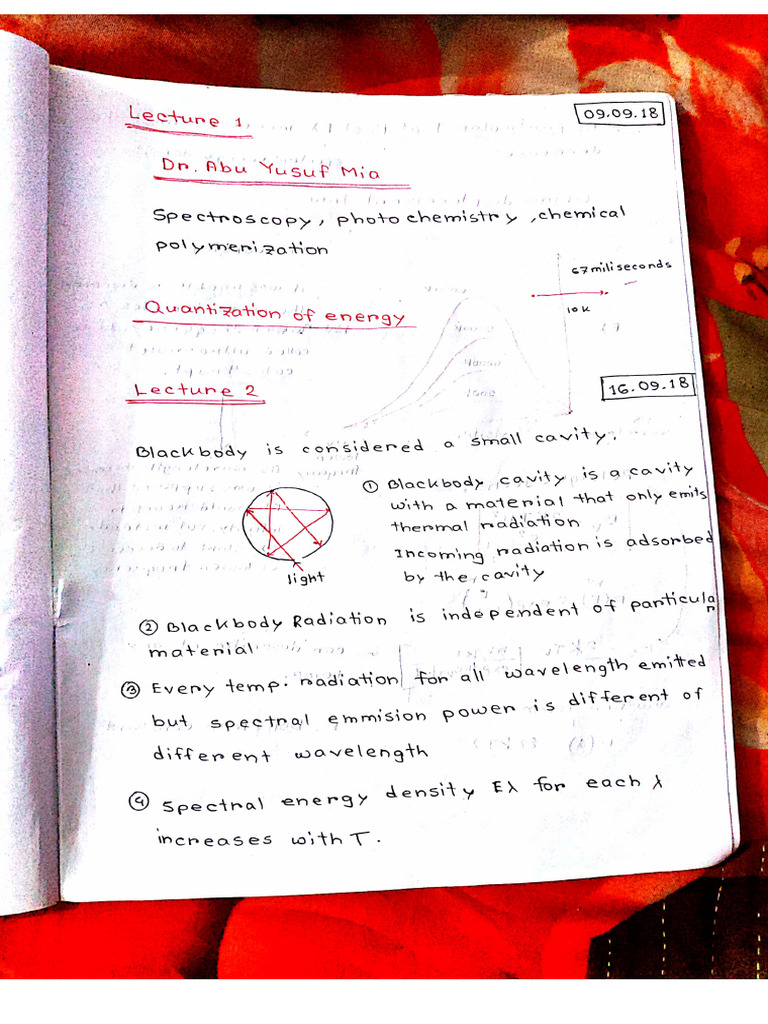 Lecture 1
09.09.18
Dr. Abu Yusuf Mia
Spectroscopy, photochemistry, chemical
polymerization
67 miliseconds
10K
Quantization of energy
Lecture 2
16.09.18
Blackbody is considered a small cavity.
① Blackbody cavity is a cavity
with a material that only emits
thermal radiation
Incoming radiation is adsorbed
by the cavity
light
② Blackbody Radiation is independent of particular
material
③ Every temp. radiation for all wavelength emitted
but spectral emmision power is different of
different wavelength
④ Spectral energy density Eλ for each λ
increases with T.